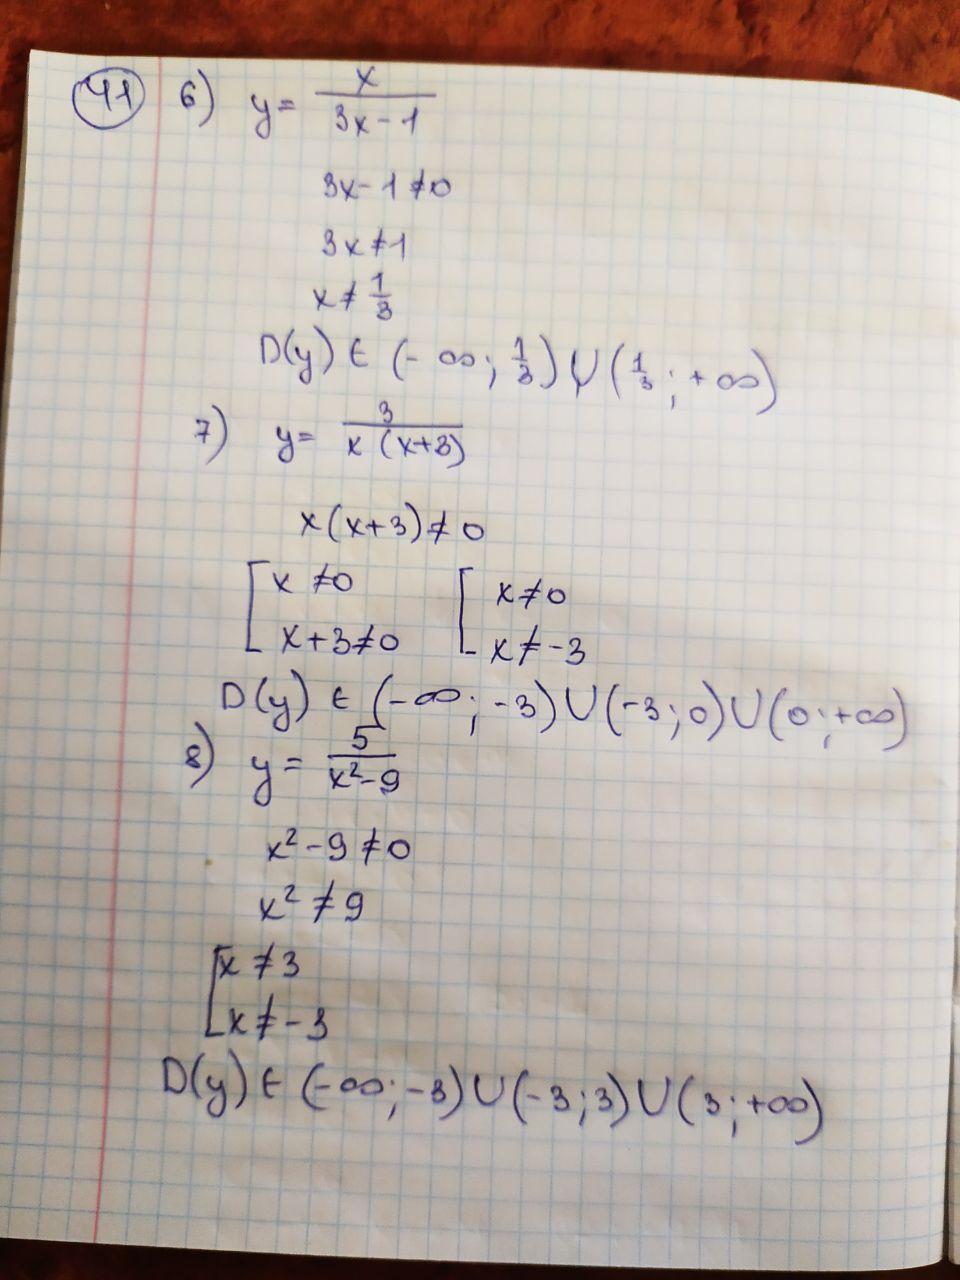 41 6) y = x / (3x - 1)
3x - 1 ≠ 0
3x ≠ 1
x ≠ 1/3
D(y) ∈ (-∞; 1/3) ∪ (1/3; +∞)
7) y = 3 / (x (x+3))
x(x+3) ≠ 0
[ x ≠ 0 [ x ≠ 0
x+3 ≠ 0 x ≠ -3
D(y) ∈ (-∞; -3) ∪ (-3; 0) ∪ (0; +∞)
8) y = 5 / (x² - 9)
x² - 9 ≠ 0
x² ≠ 9
[ x ≠ 3
x ≠ -3
D(y) ∈ (-∞; -3) ∪ (-3; 3) ∪ (3; +∞)